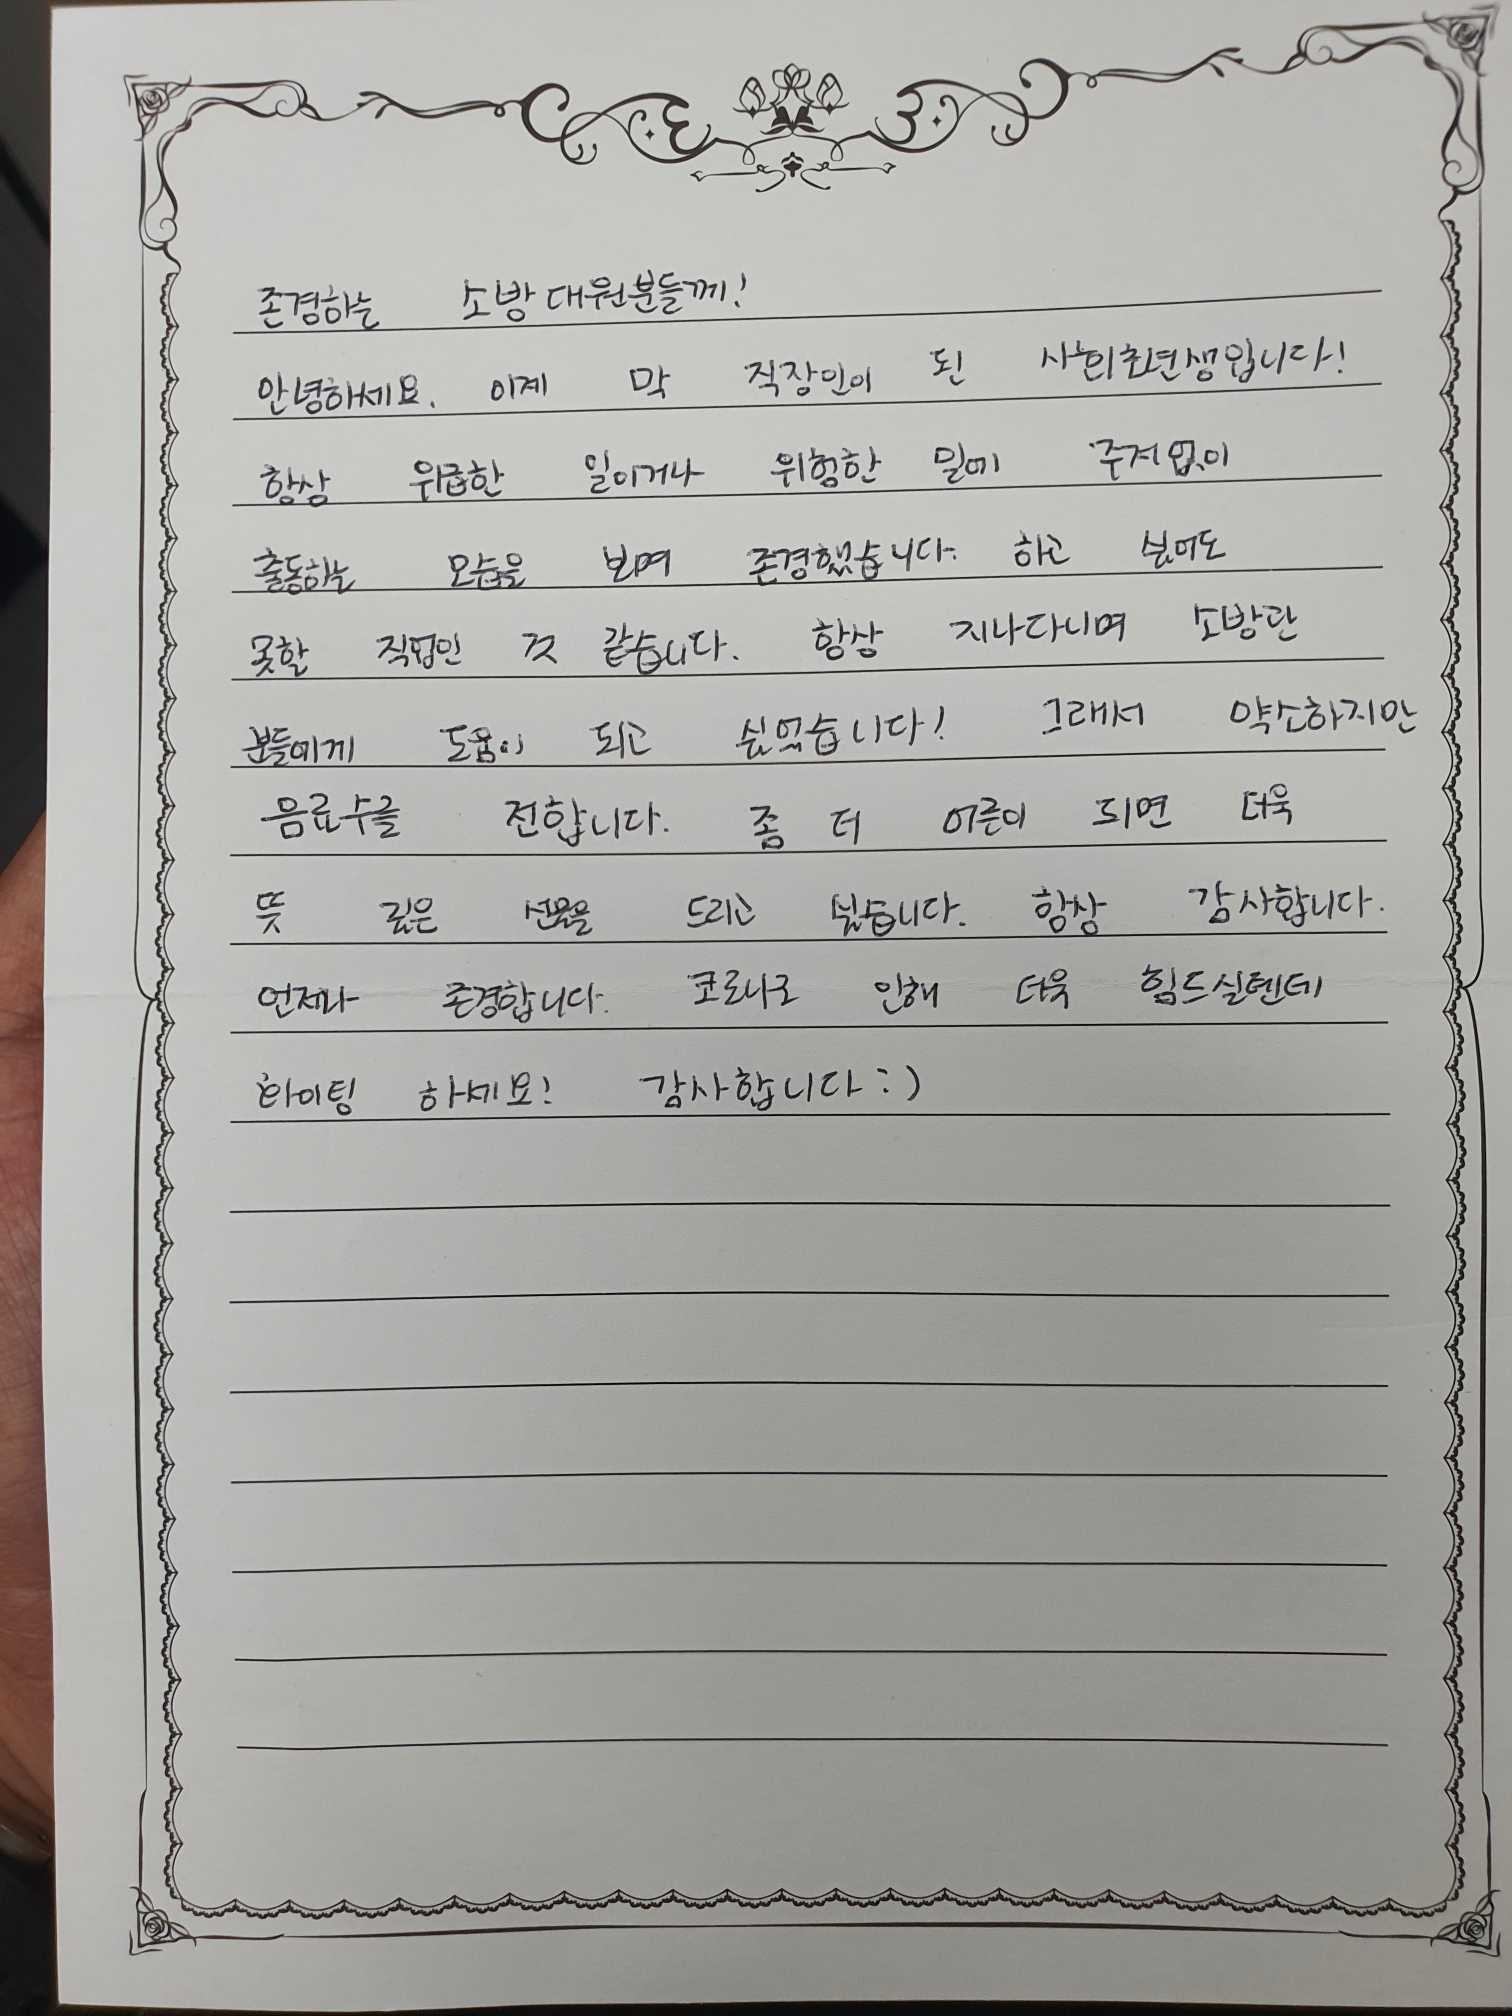 존경하는 소방대원분들께!
안녕하세요. 이제 막 직장인이 된 사회초년생입니다!
항상 위급한 일이거나 위험한 일에 주저없이
출동하는 모습을 보며 존경했습니다. 하고 싶어도
못할 직업인 것 같습니다. 항상 지나다니며 소방관
분들에게 도움이 되고 싶었습니다! 그래서 약소하지만
음료수를 전합니다. 좀 더 어른이 되면 더욱
뜻 깊은 선물을 드리고 싶습니다. 항상 감사합니다.
언제나 존경합니다. 코로나로 인해 더욱 힘드실텐데
화이팅 하세요! 감사합니다 :)